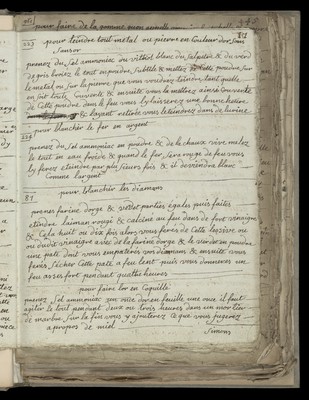 pour teindre tout metal ou pierre en Couleur d'or sans
223
prenez du sel armoniac ou vitriol blanc du salpetre & du verd
de gris broiez le tout en poudre subtile & mettez poudre sur
le metal ou sur la pierre que vous voudriez teindre tant quelle
en soit toute couverte & ensuite vous la mettrez ainsi couverte
de cette poudre dans le feu vous ly laisserez une bonne heure
& layant retirée vous leteindrez dans de lurine
pour blanchir le fer en argent
224
prenez du sel armoniac en poudre & de la chaux vive melez
le tout en eau froide & quand le fer sera rouge de feu vous
ly ferez eteindre par plusieurs fois & il deviendra blanc
Comme largent
pour blanchir les diamons
prenez farine dorge & parties egales puis faites
eteindre laiman rouge & calciné au feu dans de fort vinaigre
& Cela huit ou dix fois alors vous ferez de Cette lessive ou
ou dudit vinaigre avec de la farine dorge & le verdet en poudre
une pate dont vous empaterez vos diamons & ensuite vous
ferez secher Cette pate a feu lent puis vous donnerez un
feu assez fort pendant quatre heures
pour faire lor en Coquille
prenez sel armoniac une once dor en feuille une once il faut
agiter le tout pendant deux ou trois heures dans un mortier
de marbre sur la fin vous y ajouterez ce que vous jugerez
a propos de miel
Simons